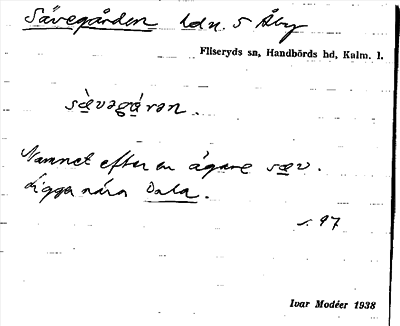 Sävegården hdn. 5 Åby
Fliseryds sn, Handbörds hd, Kalm. l.
sæ̀vəgá̱rən.
Namnet efter en ägare sæv.
Ligger nära Dala.
s. 97
Ivar Modéer 1938